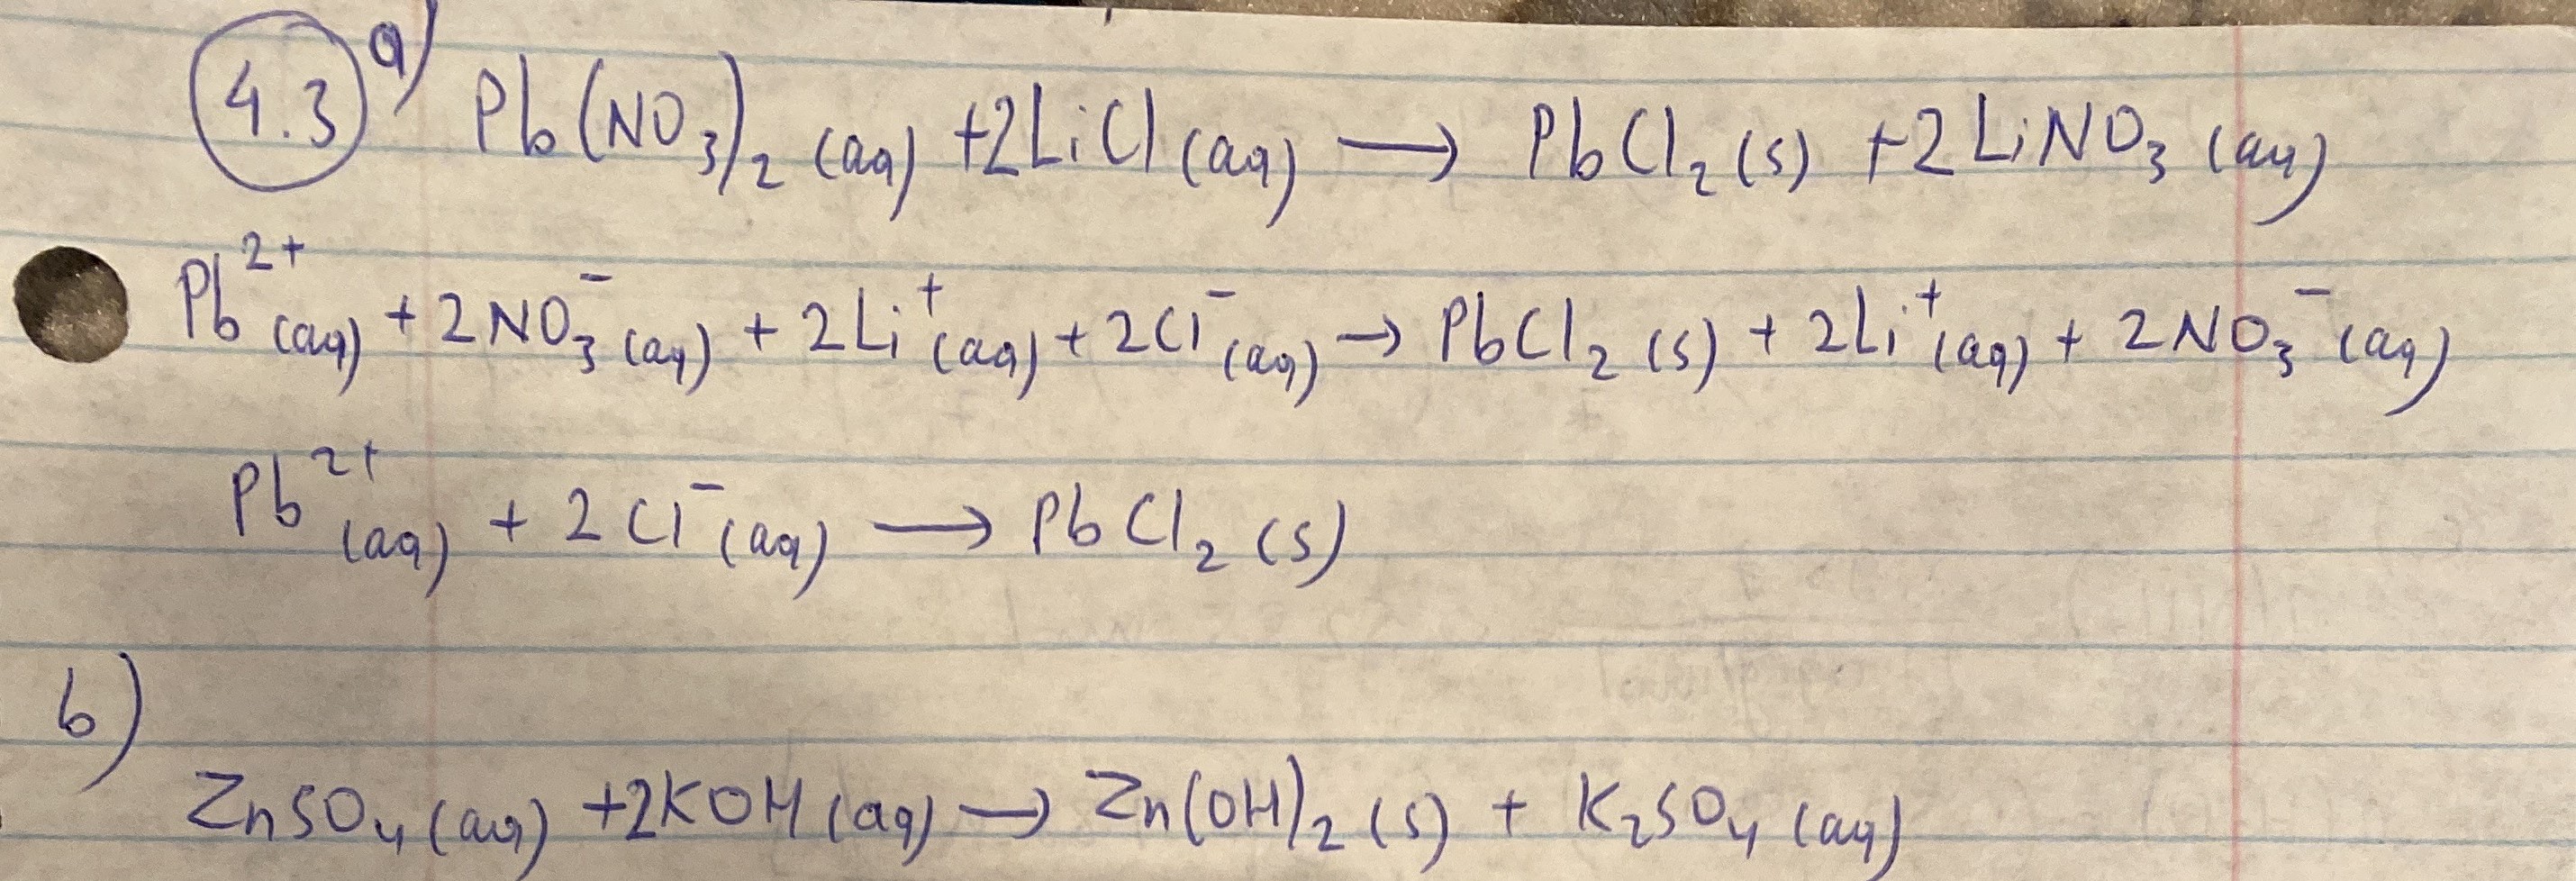 4.3 a) Pb(NO₃)₂ (aq) + 2LiCl (aq) → PbCl₂ (s) + 2LiNO₃ (aq)
Pb²⁺ (aq) + 2NO₃⁻ (aq) + 2Li⁺ (aq) + 2Cl⁻ (aq) → PbCl₂ (s) + 2Li⁺ (aq) + 2NO₃⁻ (aq)
Pb²⁺ (aq) + 2Cl⁻ (aq) → PbCl₂ (s)
b)
ZnSO₄ (aq) + 2KOH (aq) → Zn(OH)₂ (s) + K₂SO₄ (aq)